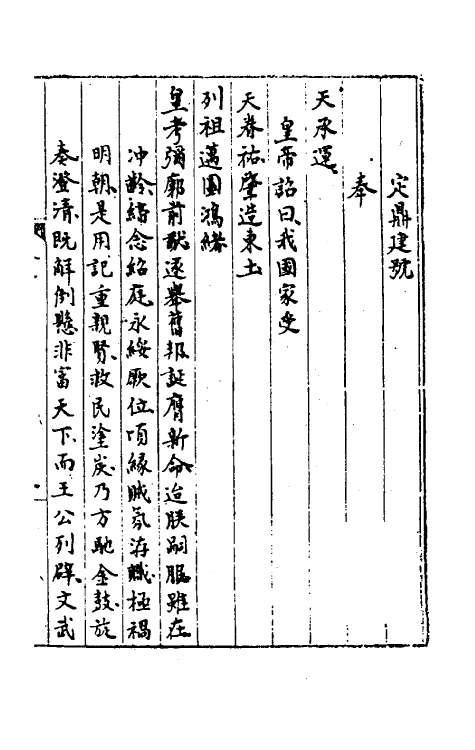 定鼎建號
奉
天承運
皇帝詔曰我國家受
天眷祐肇造東土
列祖邁圖鴻緒
皇考彌廓前猷遂舉舊邦誕膺新命迨朕嗣服雖在
冲齡緒念紹庭永綏厥位頃緣賊氛洊熾極禍
明朝是用託重親賢救民塗炭乃方馳金鼓旋
奏澄清既解倒懸非富天下而王公列辟文武